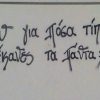 για πόσα τίπ
έκανες τα πάντα